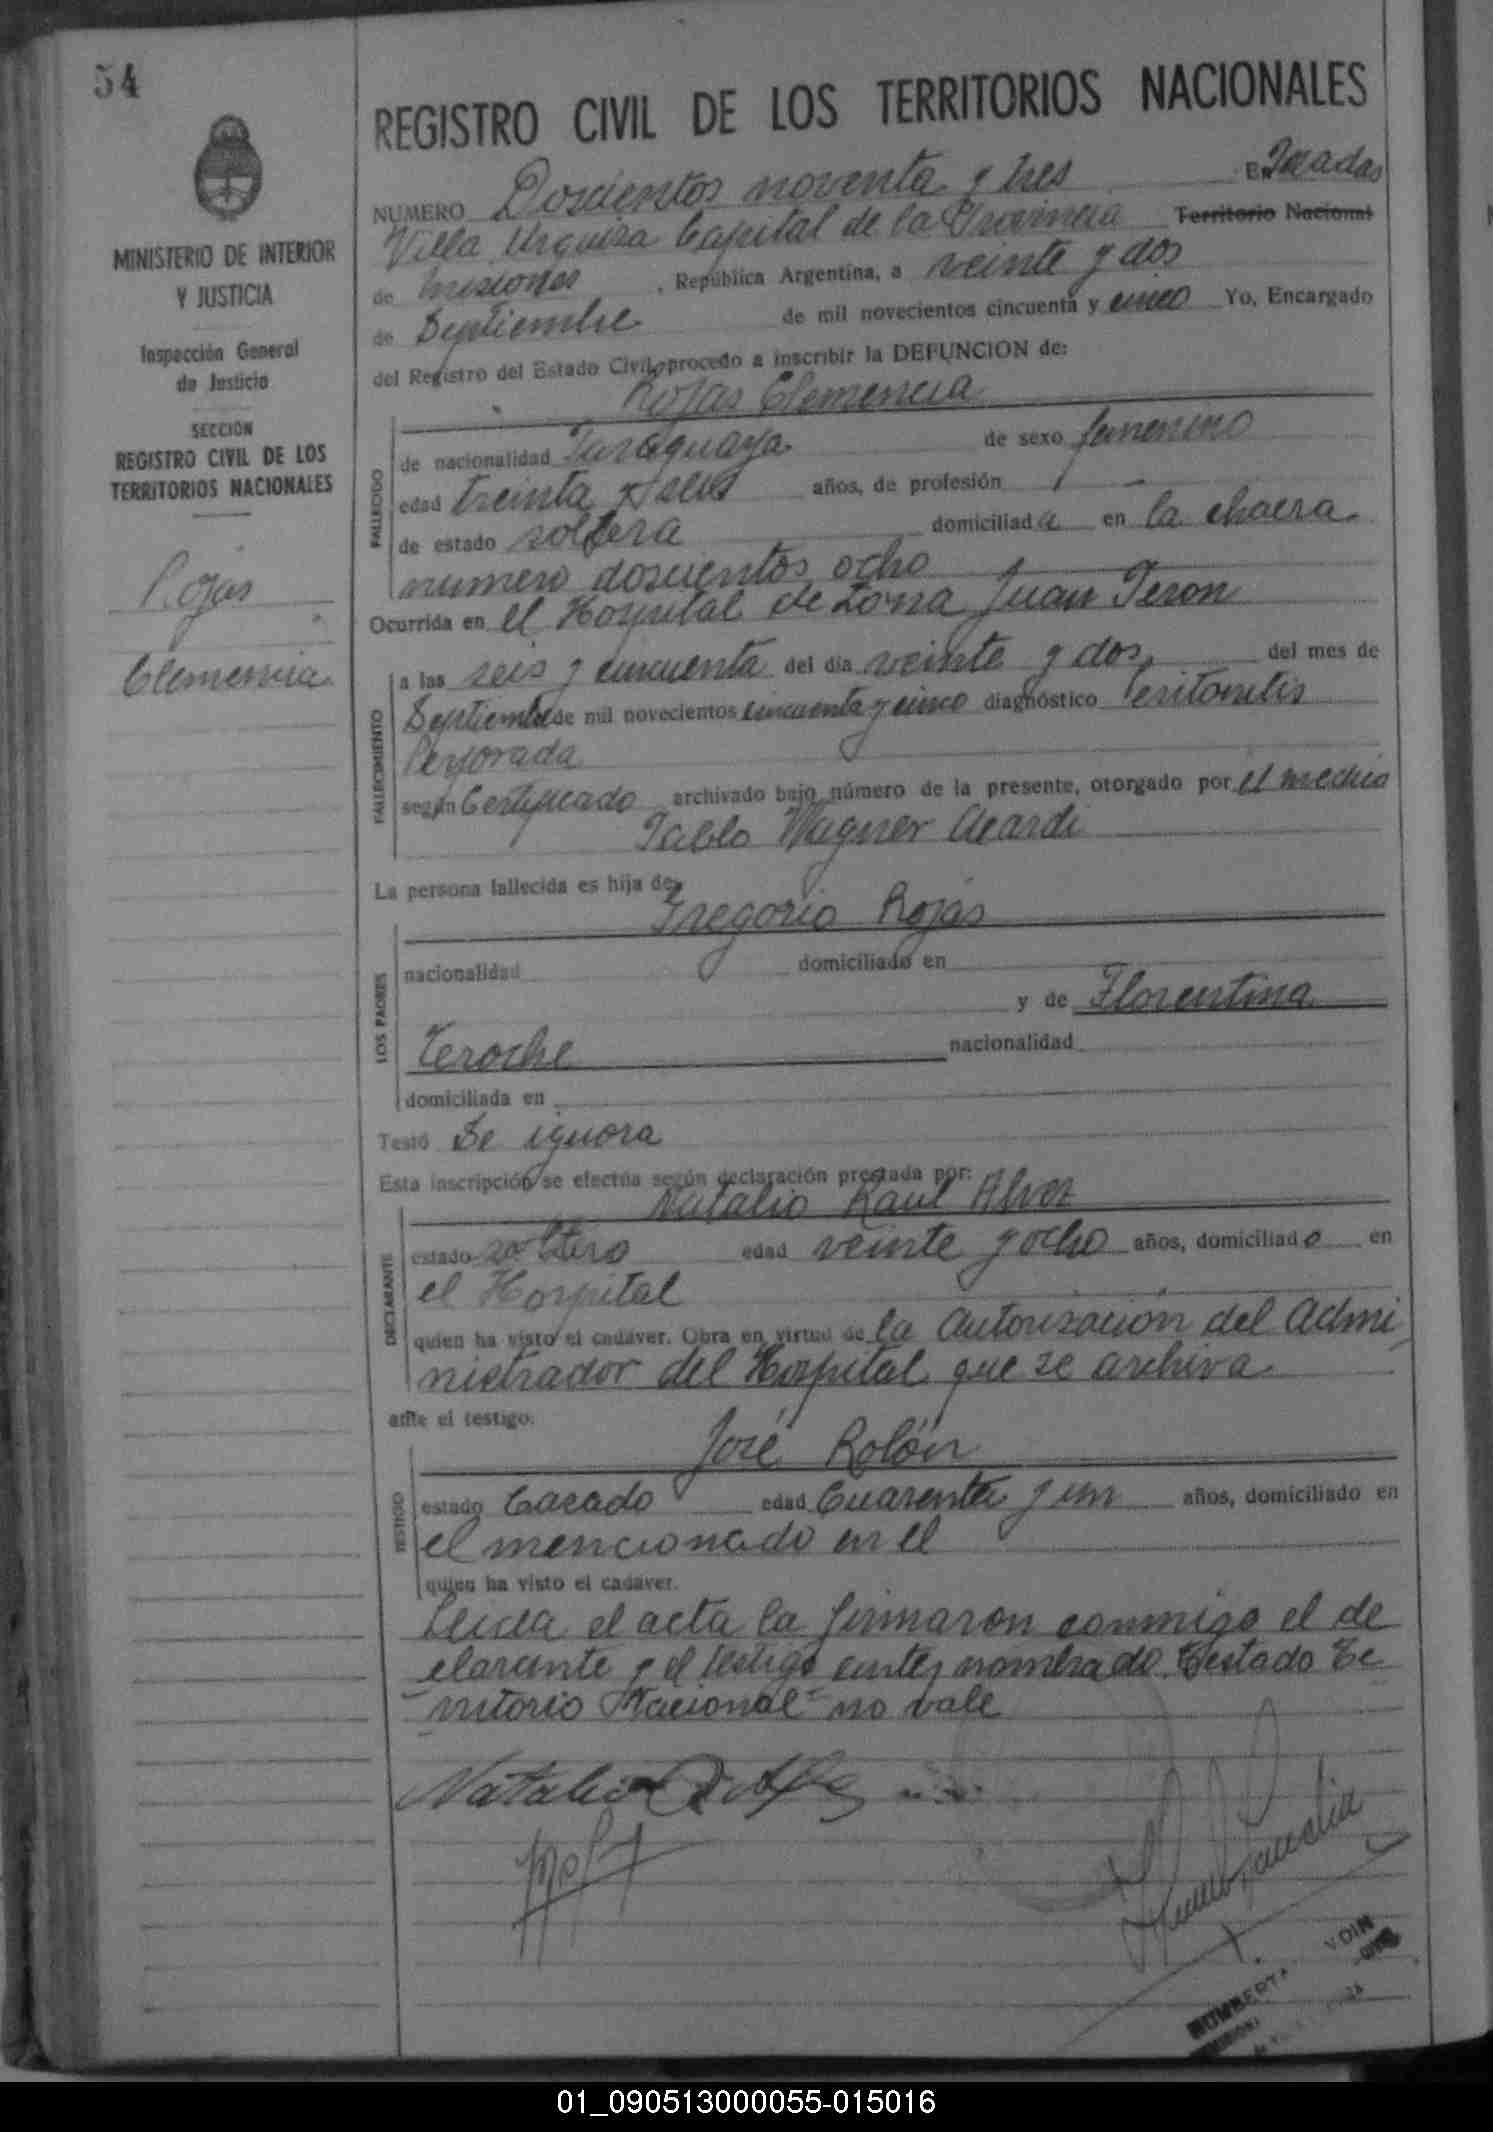 54
MINISTERIO DE INTERIOR
Y JUSTICIA
Inspección General
de Justicia
SECCION
REGISTRO CIVIL DE LOS
TERRITORIOS NACIONALES
Rojas
Clemencia
REGISTRO CIVIL DE LOS TERRITORIOS NACIONALES
NUMERO Doscientos noventa y tres EN Posadas
Villa Urquiza Capital de la Provincia Territorio Nacional
de Misiones, República Argentina, a veinte y dos
de Septiembre de mil novecientos cincuenta y cinco Yo, Encargado
del Registro del Estado Civil, procedo a inscribir la DEFUNCION de:
Rojas Clemencia
FALLECIDO
de nacionalidad Paraguaya de sexo femenino
edad treinta y seis años, de profesión -
de estado soltera domiciliada en la chacra
numero doscientos ocho
Ocurrida en el Hospital de Zona Juan Peron
FALLECIMIENTO
a las seis y cincuenta del día veinte y dos del mes de
Septiembre de mil novecientos cincuenta y cinco diagnóstico Peritonitis
Perforada
según Certificado archivado bajo número de la presente, otorgado por el medico
Pablo Wagner Acardi
La persona fallecida es hija de
Gregorio Rojas
LOS PADRES
nacionalidad domiciliado en
y de Florentina
Teroche nacionalidad
domiciliada en
Testó Se ignora
Esta inscripción se efectúa según declaración prestada por:
Natalio Raul Alvez
DECLARANTE
estado soltero edad veinte y ocho años, domiciliado en
el Hospital
quien ha visto el cadáver. Obra en virtud de la Autorización del Admi
nistrador del Hospital que se archiva
ante el testigo:
José Rolón
TESTIGO
estado Casado edad Cuarenta y un años, domiciliado en
el mencionado en el
quien ha visto el cadaver.
Leida el acta la firmaron conmigo el de
clarante y el testigo antes nombrado. Testado Te
rritorio Nacional" no vale
Natalio R Alvez
01_090513000055-015016